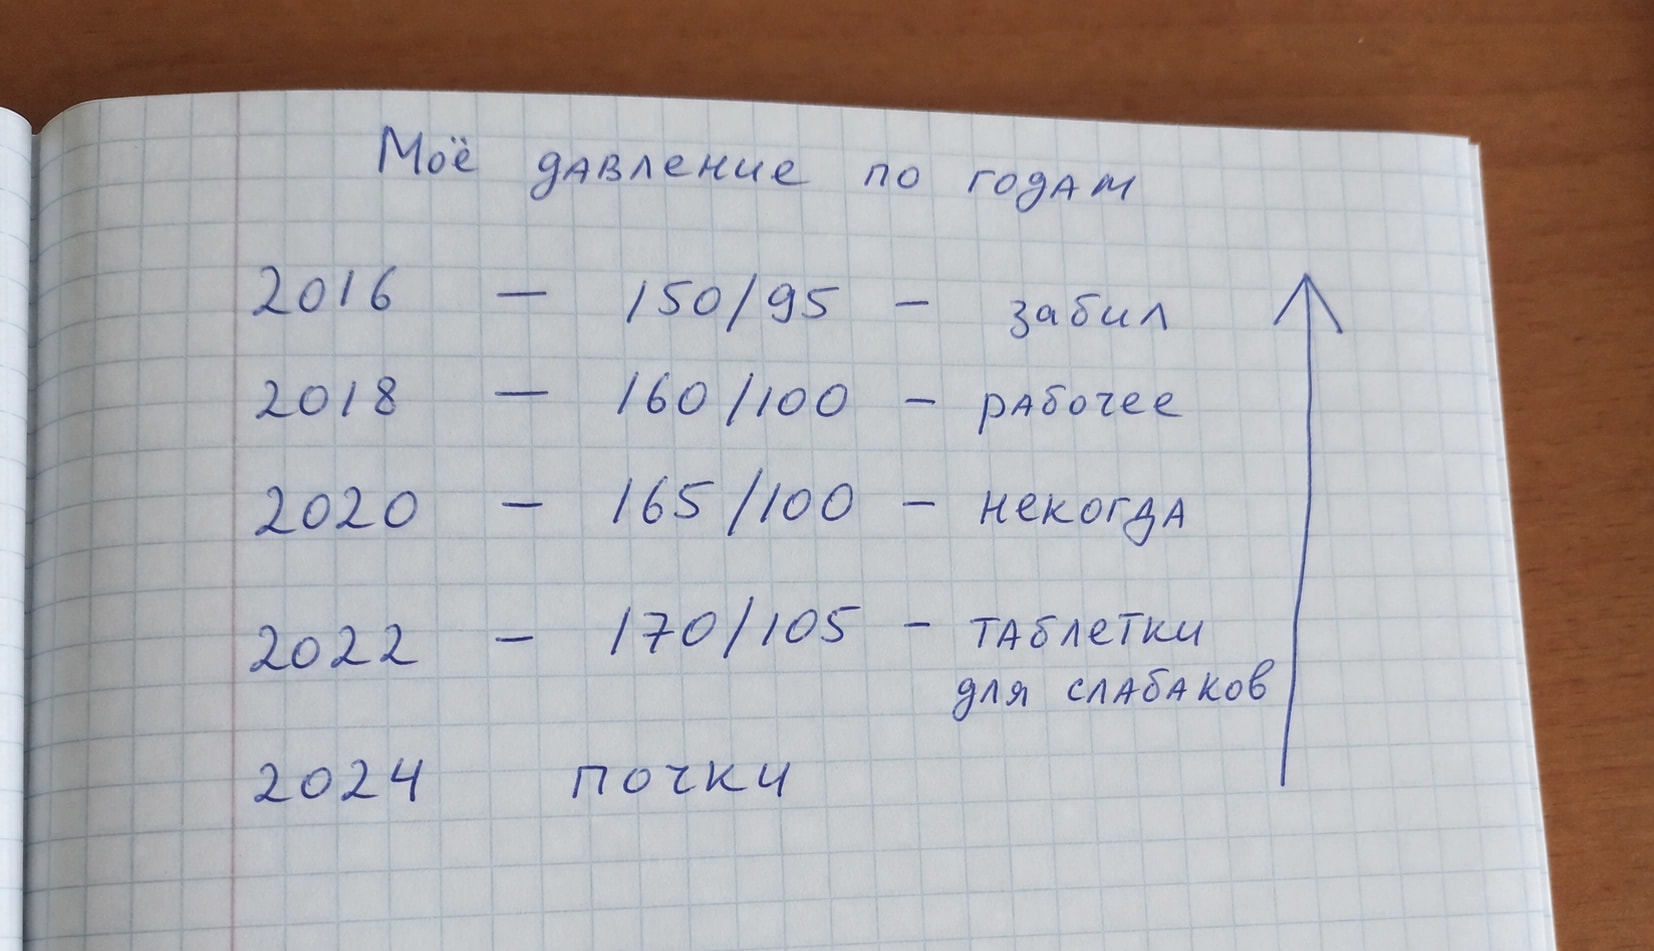 Моё давление по годам
2016 — 150/95 — забил
2018 — 160/100 — рабочее
2020 — 165/100 — некогда
2022 — 170/105 — таблетки
для слабаков
2024 почки